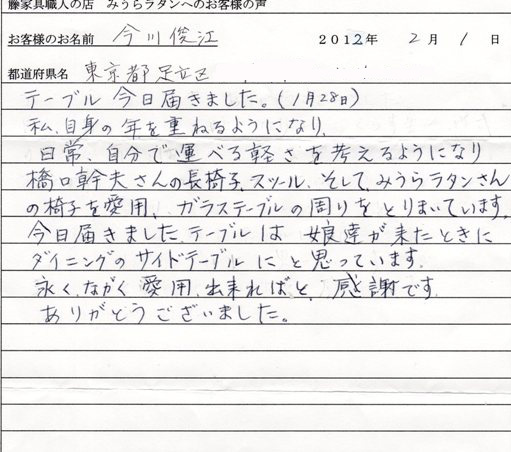 藤家具職人の店 みうらラタンへのお客様の声
お客様のお名前 今川俊江 2012年 2月 1日
都道府県名 東京都足立区
テーブル今日届きました。(1月28日)
私、自身の年を重ねるようになり、
日常、自分で運べる軽さを考えるようになり
橋口幹夫さんの長椅子、スツール、そして、みうらラタンさん
の椅子を愛用、ガラステーブルの周りをとりまいています。
今日届きました、テーブルは 娘達が来たときに
ダイニングのサイドテーブルにと思っています。
永く、ながく愛用、出来ればと、感謝です。
ありがとうございました。